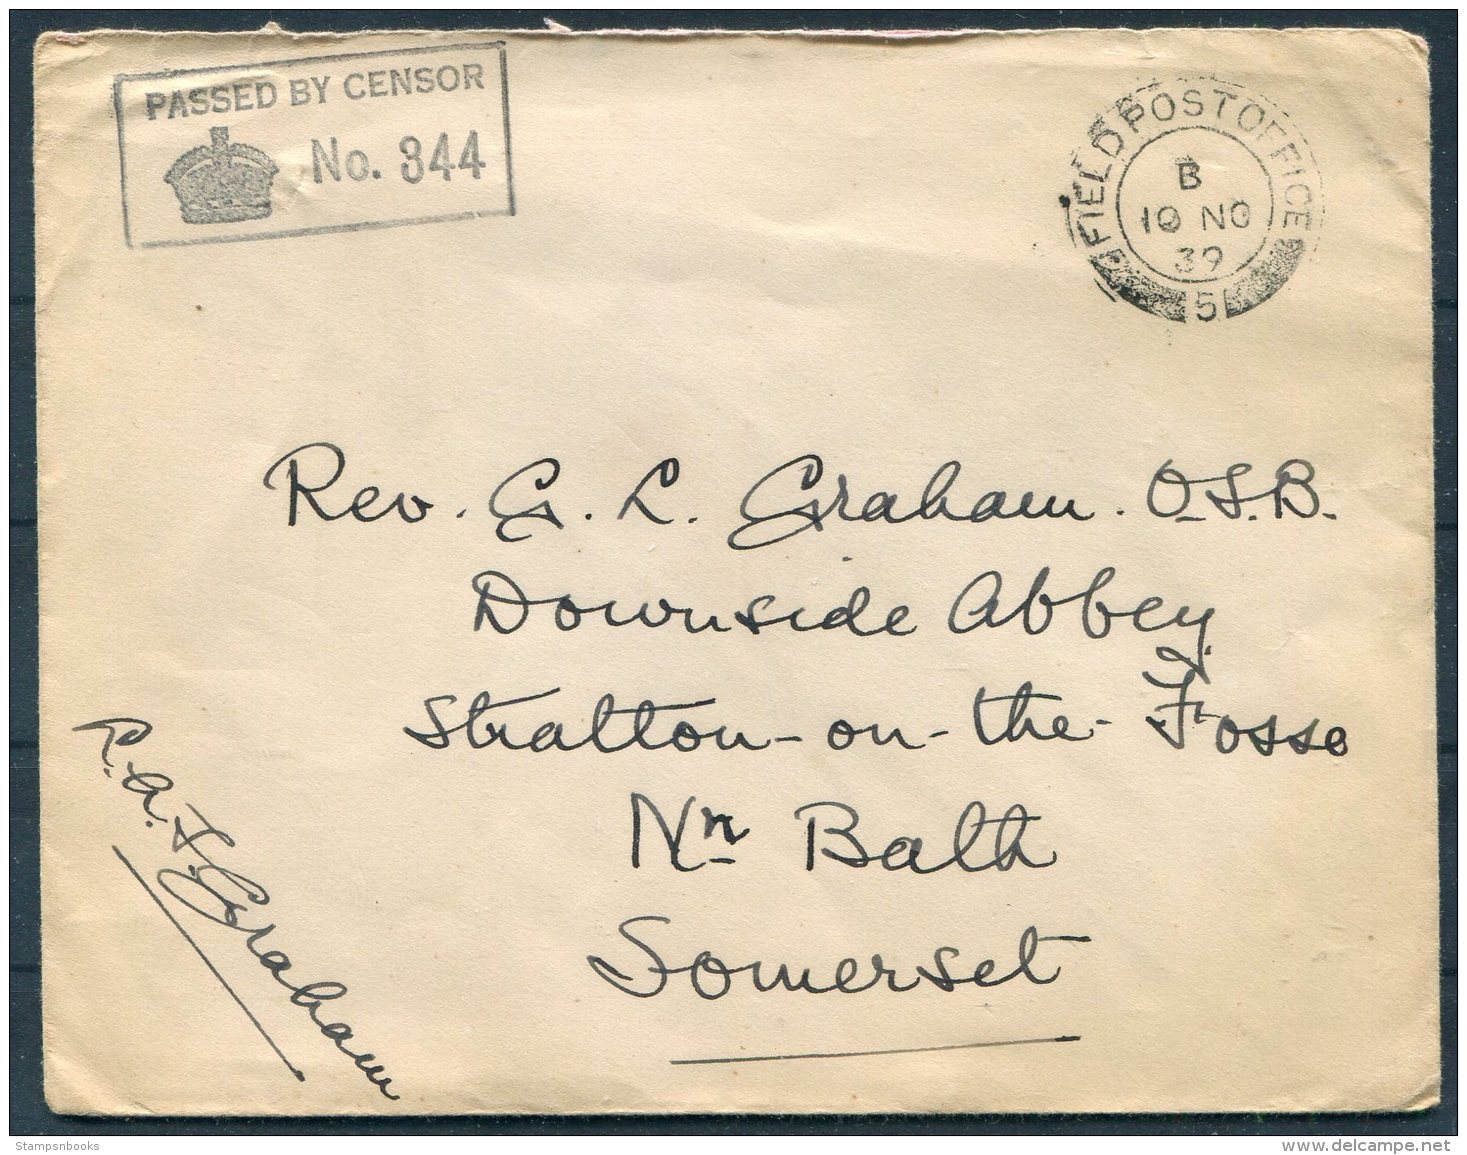 PASSED BY CENSOR
No. 344
FIELD POST OFFICE
B
10 NO
39
5
Rev. G. L. Graham. O.S.B.
Downside Abbey
Stratton-on-the-Fosse
Nr Bath
Somerset
R.A.F. Graham
Stampsnbooks
www.delcampe.net